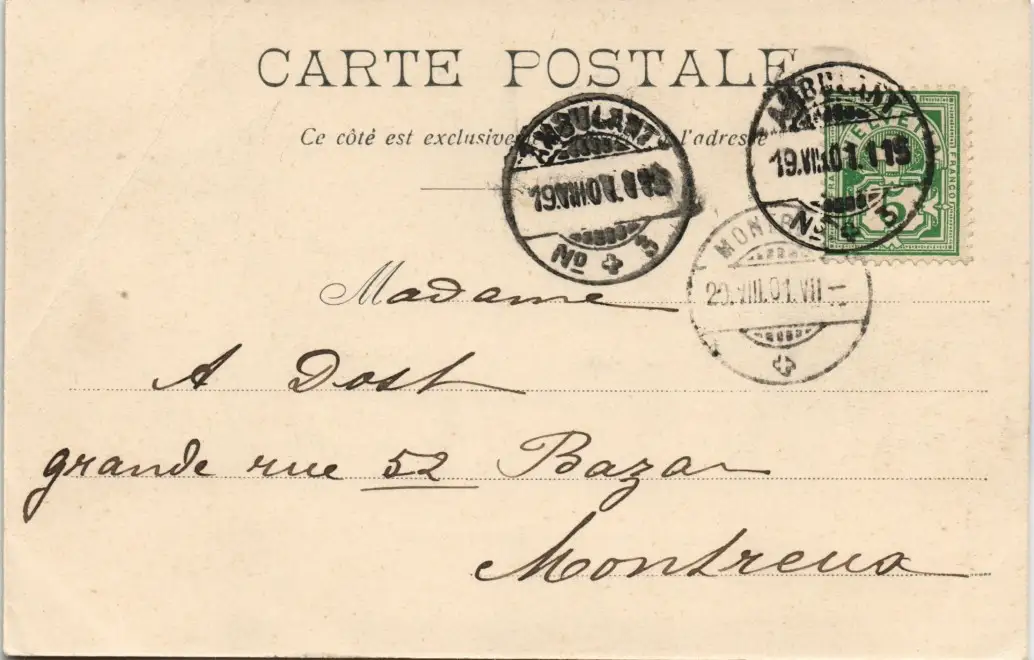 CARTE POSTALE
Ce côté est exclusive l'adresse
AMBULANT
19.VIII.01.1 15
No 3
AMBULANT
19.VIII.01.1 15
No 3
HELVETIA
FRANCO
5
MONTR
20.VIII.01.VII–
Madame
A Dost
grande rue 52 Bazar
Montreux